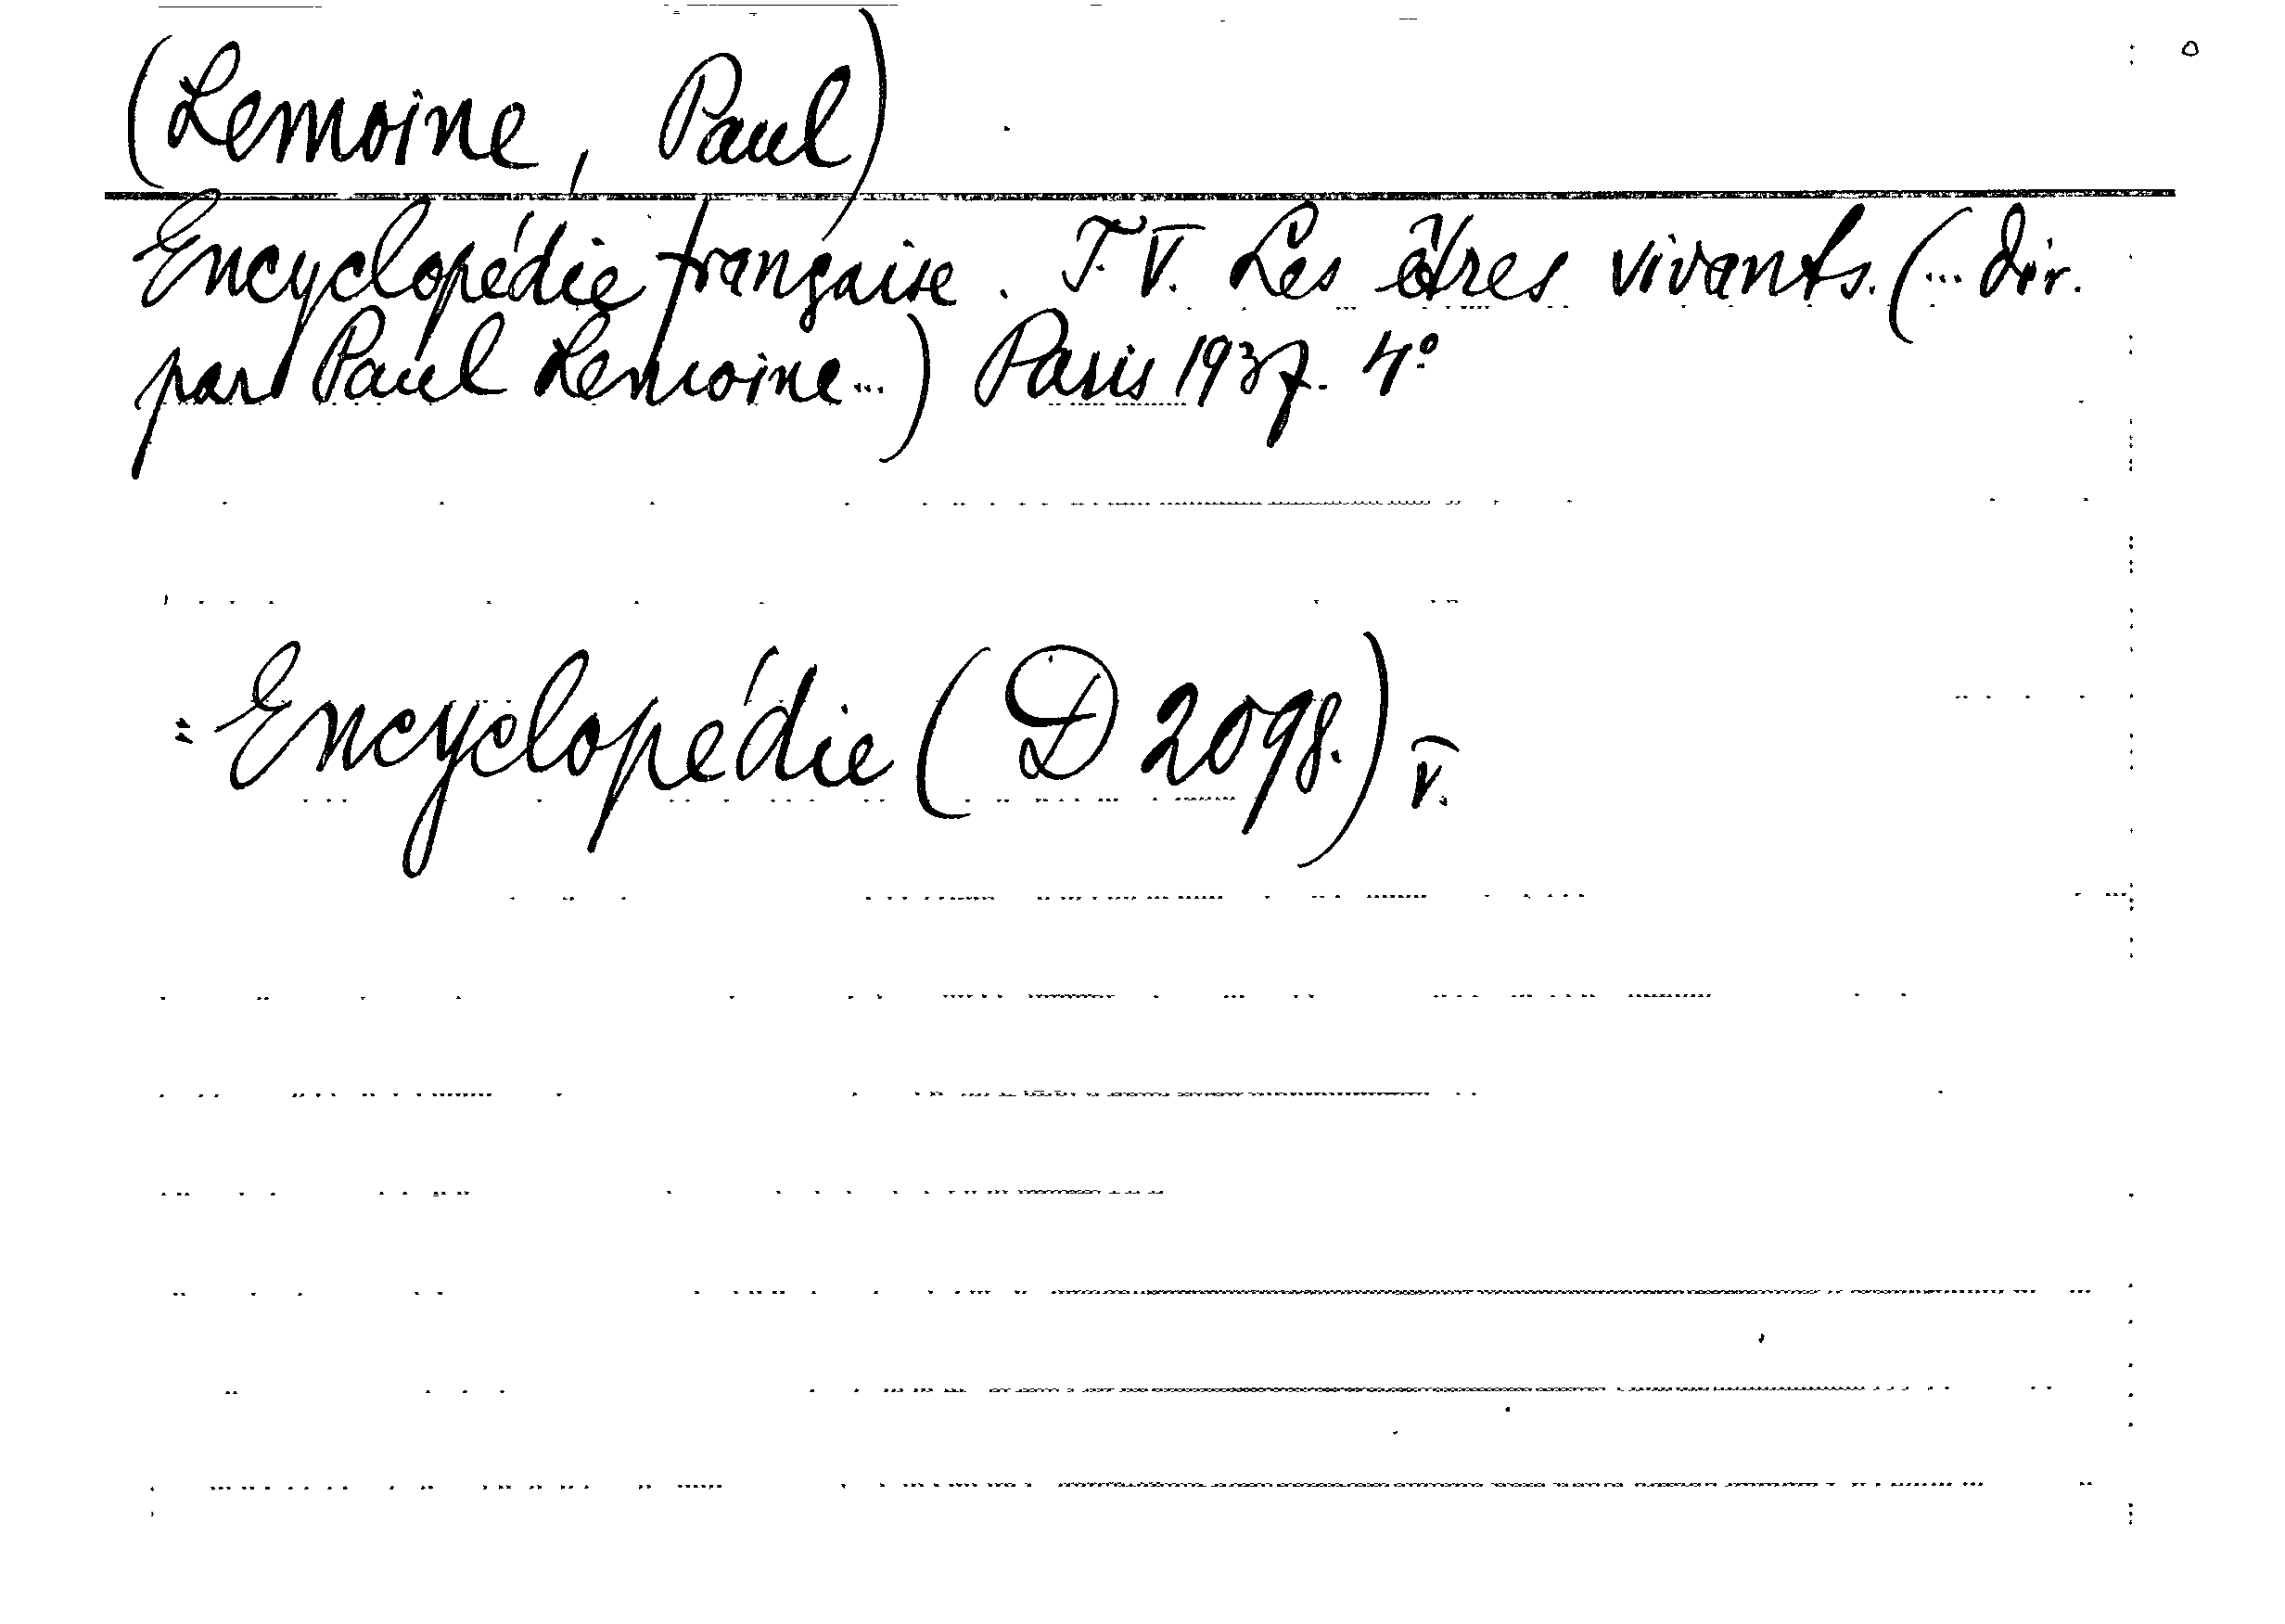 (Lemoine, Paul)
Encyclopédie française. T. V. Les êtres vivants. (... dir.
par Paul Lemoine...) Paris 1937. 4º
= Encyclopédie (D 2098.) V.